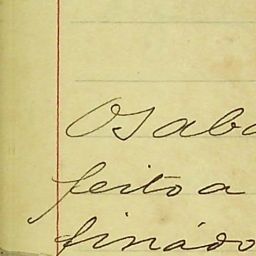 O saba
feito a
finádo